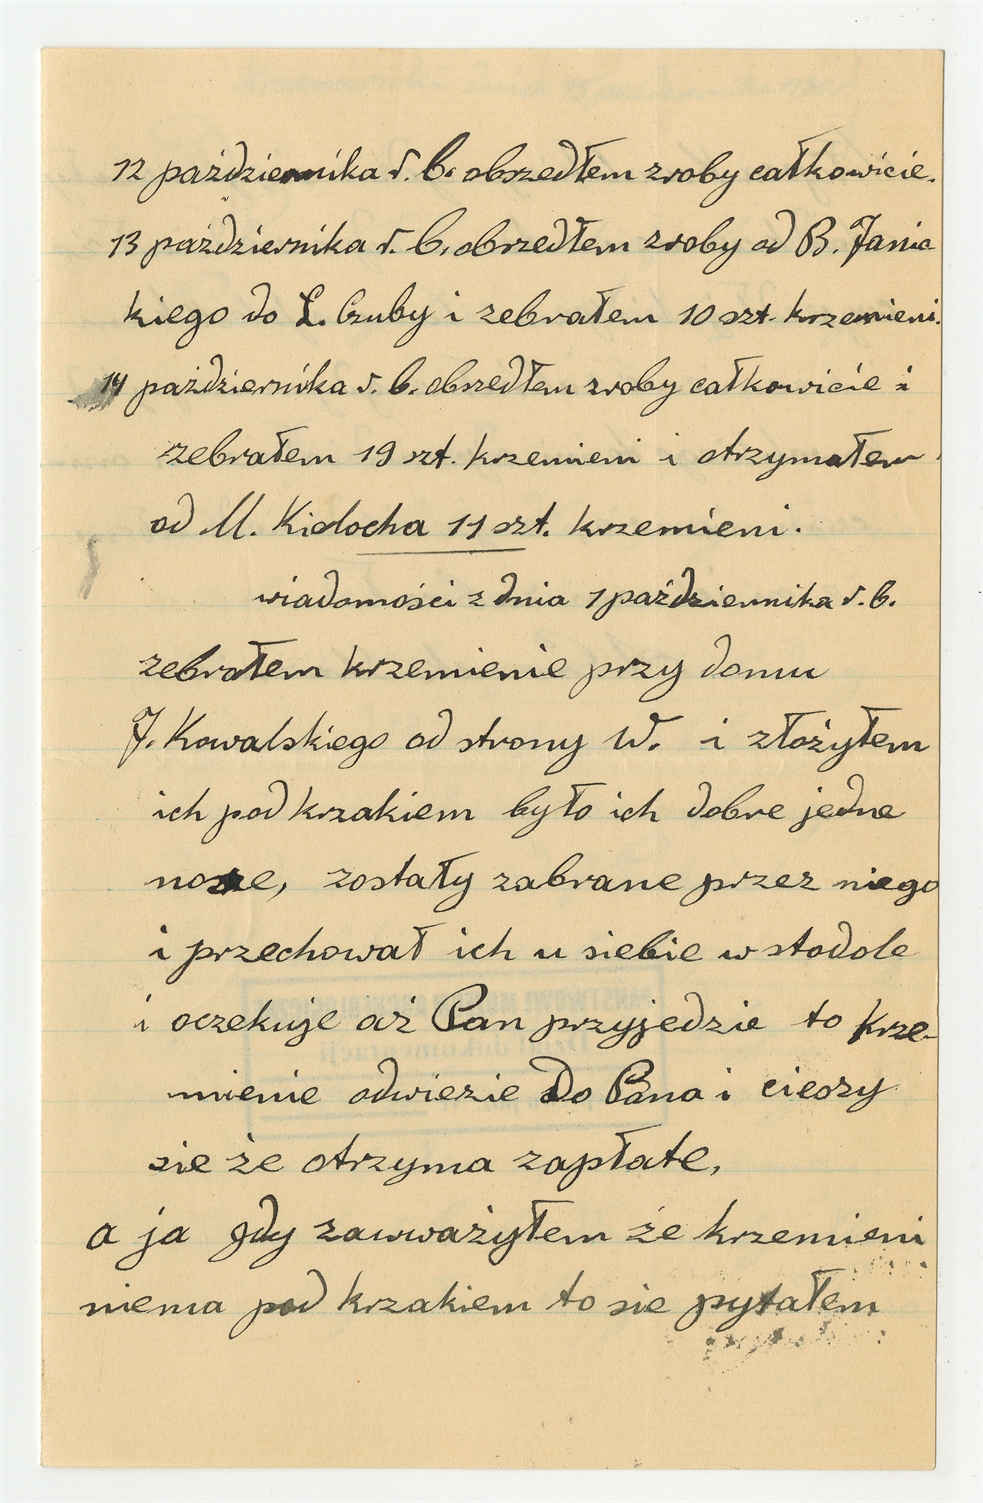 12 października r. b. obszedłem zroby całkowicie.
13 października r. b. obszedłem zroby od B. Janic
kiego do L. Czuby i zebrałem 10 szt. krzemieni.
14 października r. b. obszedłem zroby całkowicie i
zebrałem 19 szt. krzemieni i otrzymałem
od M. Kislocha 11 szt. krzemieni.
wiadomości z dnia 1 października r. b.
zebrałem krzemienie przy domu
J. Kowalskiego od strony W. i złożyłem
ich pod krzakiem było ich dobre jedne
nosze, zostały zabrane przez niego
i przechował ich u siebie w stodole
i oczekuje aż Pan przyjedzie to krze-
mienie odwiezie do Pana i cieszy
sie że otrzyma zapłate,
a ja gdy zauważyłem że krzemieni
niema pod krzakiem to sie pytałem